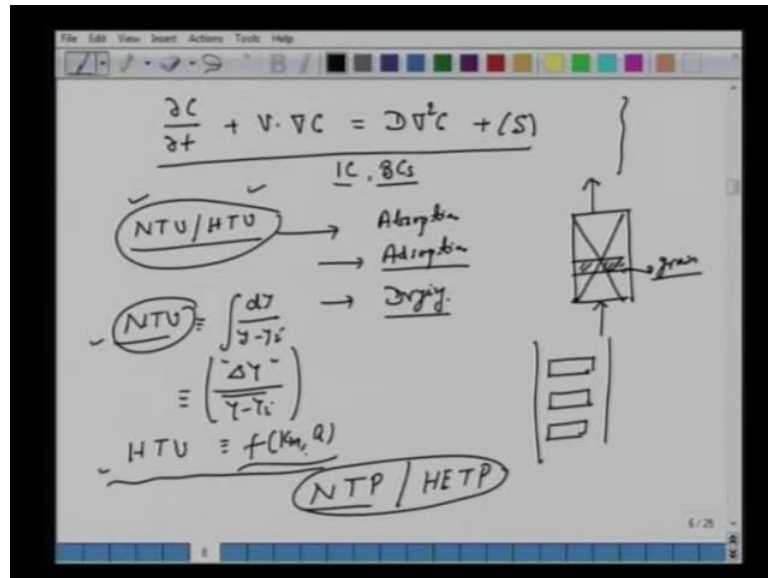 File Edit View Insert Actions Tools Help
∂C/∂t + V·∇C = D∇²C + (S)
IC, BCs
NTU/HTU → Absorption
→ Adsorption
→ Drying.
NTU ≡ ∫ dY/(Y-Yi)
≡ ("ΔY"/(Y-Yi))
HTU ≡ f(Km, Q)
NTP / HETP
grain
6 / 25
6